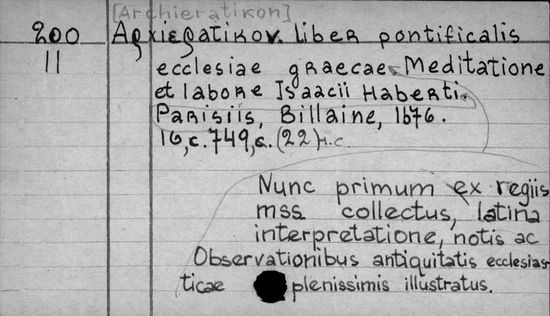 [Archieratikon]
200 Αρχιερατικον. liber pontificalis
11 ecclesiae graecae. Meditatione
et labore Isaacii Haberti.
Parisiis, Billaine, 1676.
16,c.749,c.(22)н.с.
Nunc primum ex regiis
mss. collectus, latina
interpretatione, notis ac
Observationibus antiquitatis ecclesias-
ticae plenissimis illustratus.